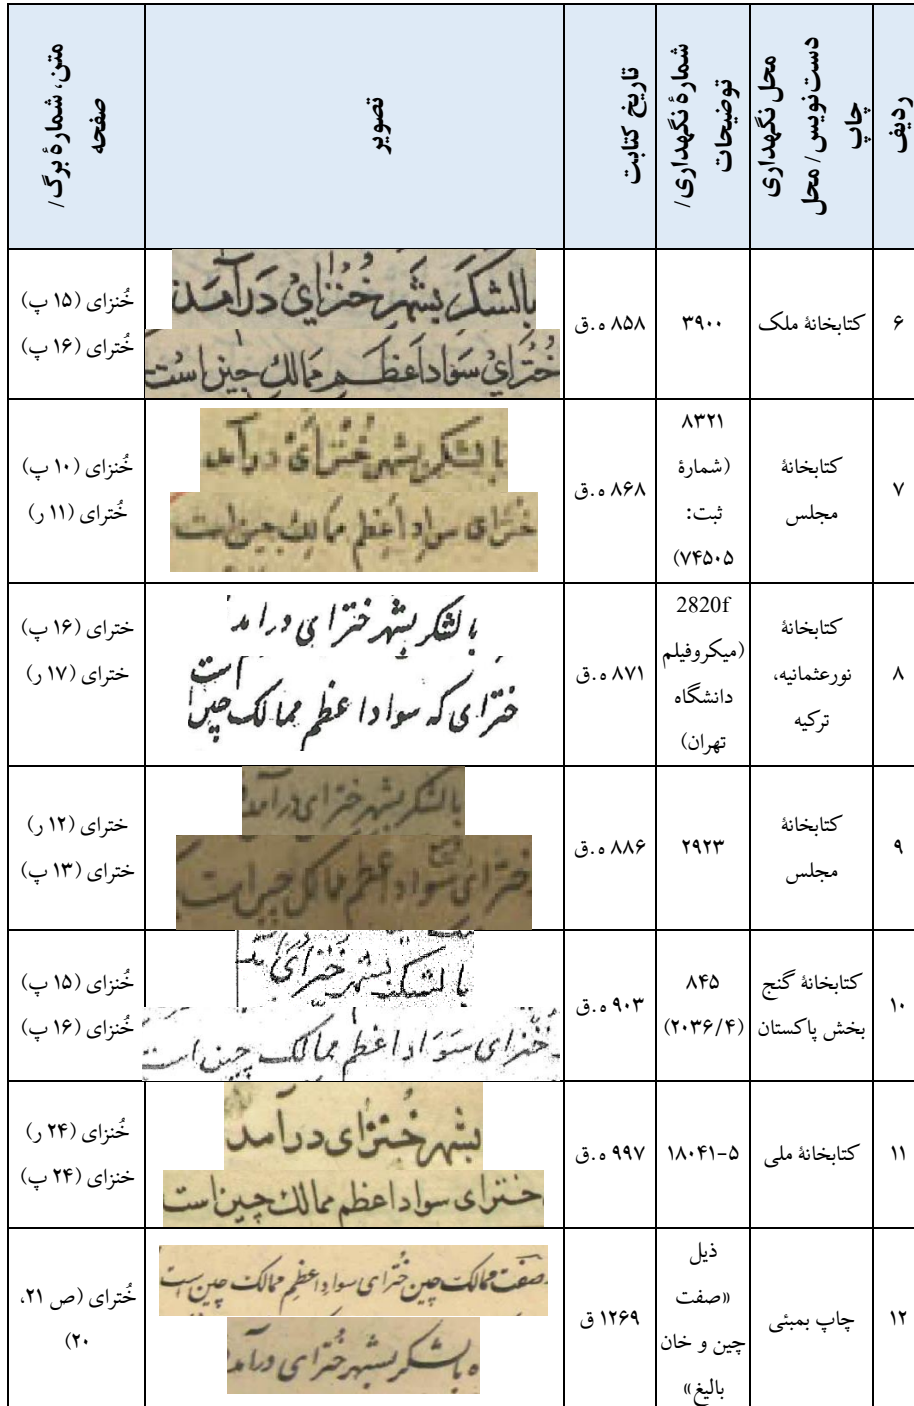 ردیف
محل نگهداری دست‌نویس/ محل چاپ
شمارهٔ نگهداری/ توضیحات
تاریخ کتابت
تصویر
متن، شمارهٔ برگ/ صفحه
۶
کتابخانهٔ ملک
۳۹۰۰
۸۵۸ ه‍.ق
بالشکر بشهر خُنزایْ دَرآمَدَند
خُتُرایْ سَوَاد اَعظَم مَمَالك چین است
خُنزای (۱۵ پ)
خُترای (۱۶ پ)
۷
کتابخانهٔ
مجلس
۸۳۲۱
(شمارهٔ
ثبت:
۷۴۵۰۵)
۸۶۸ ه‍.ق
با لشکر بشهر خُنزای درآمد
خترای سواد اعظم ممالک چین است
خُنزای (۱۰ پ)
خُترای (۱۱ ر)
۸
کتابخانهٔ
نورعثمانیه،
ترکیه
2820f
(میکروفیلم
دانشگاه
تهران)
۸۷۱ ه‍.ق
با لشکر بشهر خترای درامد
خترای که سواد اعظم ممالک چین است
خترای (۱۶ پ)
خترای (۱۷ ر)
۹
کتابخانهٔ
مجلس
۲۹۲۳
۸۸۶ ه‍.ق
بالشکر بشهر خترای درآمد
خترای سواد اعظم ممالک چین است
خترای (۱۲ ر)
خترای (۱۳ پ)
۱۰
کتابخانهٔ گنج
بخش پاکستان
۸۴۵
(۲۰۳۶/۴)
۹۰۳ ه‍.ق
با لشکر بشهر خنزای
خُنزای سَوَاد اعظم ممالک چین است
خُنزای (۱۵ پ)
خُنزای (۱۶ پ)
۱۱
کتابخانهٔ ملی
۱۸۰۴۱-۵
۹۹۷ ه‍.ق
بشهر خُنزای درآمد
خنزای سواد اعظم ممالك چین است
خُنزای (۲۴ ر)
خنزای (۲۴ پ)
۱۲
چاپ بمبئی
ذیل
«صفت
چین و خان
بالیغ»
۱۲۶۹ ق
صفت ممالک چین خُترای سواد اعظم ممالک چین است
بالشکر بشهر خُترای درآمد
خُترای (ص ۲۱،
۲۰)